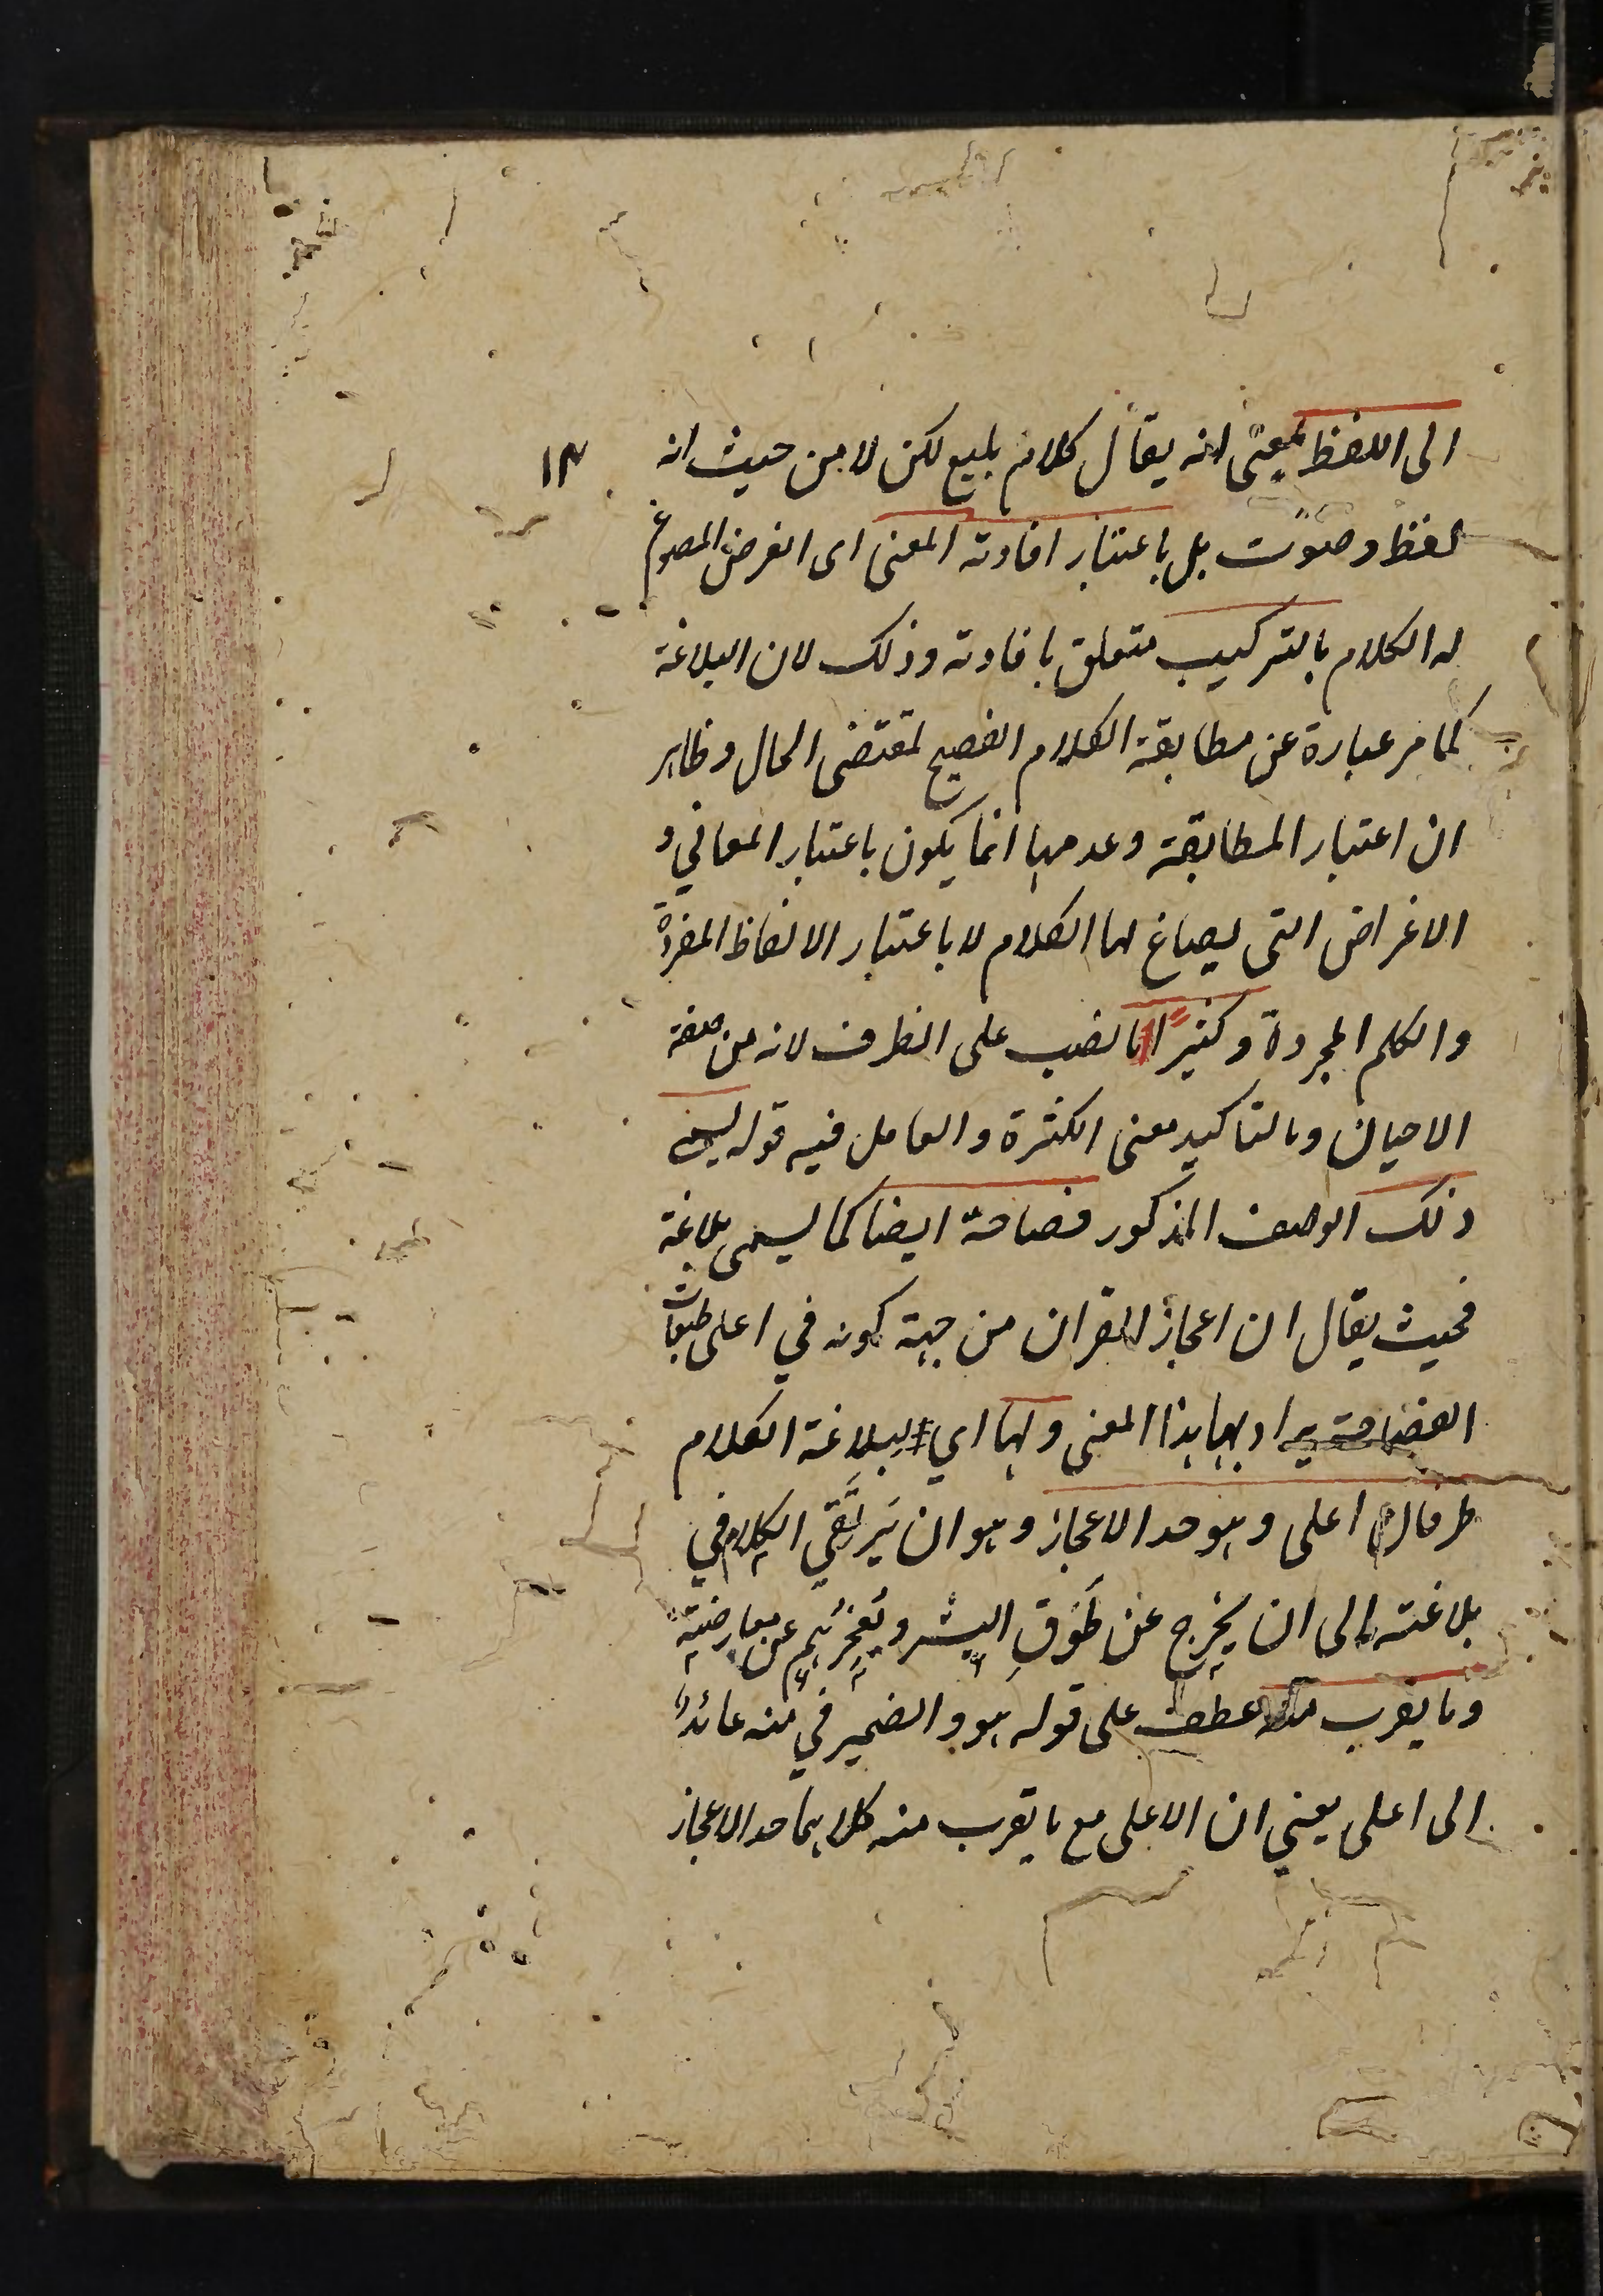 الى اللفظ بمعنى انه يقال كلام بليغ لكن لا من حيث انه
١٣
لفظ وصوت بل باعتبار افادته المعنى اى الغرض المصوغ
له الكلام بالتركيب متعلق بافادته وذلك لان البلاغة
كما مر عبارة عن مطابقة الكلام الفصيح لمقتضى الحال وظاهر
ان اعتبار المطابقة وعدمها انما يكون باعتبار المعاني و
الاغراض التى يصاغ لها الكلام لا باعتبار الالفاظ المفردة
والكلم المجردة وكثيرًا ما نصب على الظرف لانه من صفة
الاحيان وما لتاكيد معنى الكثرة والعامل فيه قوله يسمى
ذلك الوصف المذكور فصاحة ايضا كما يسمى بلاغة
فحيث يقال ان اعجاز القران من جهة كونه في اعلى طبقات
الفصاحة يراد بها هذا المعنى ولها اي لبلاغة الكلام
طرفان اعلى وهو حد الاعجاز وهو ان يَرتَقي الكلام في
بلاغته الى ان يخرج عن طَوقِ البشر ويُعجِزَهُم عن معارضته
وما يقرب منه عطف على قوله هو والضمير في منه عائد
الى اعلى يعني ان الاعلى مع ما يقرب منه كلاهما حد الاعجاز